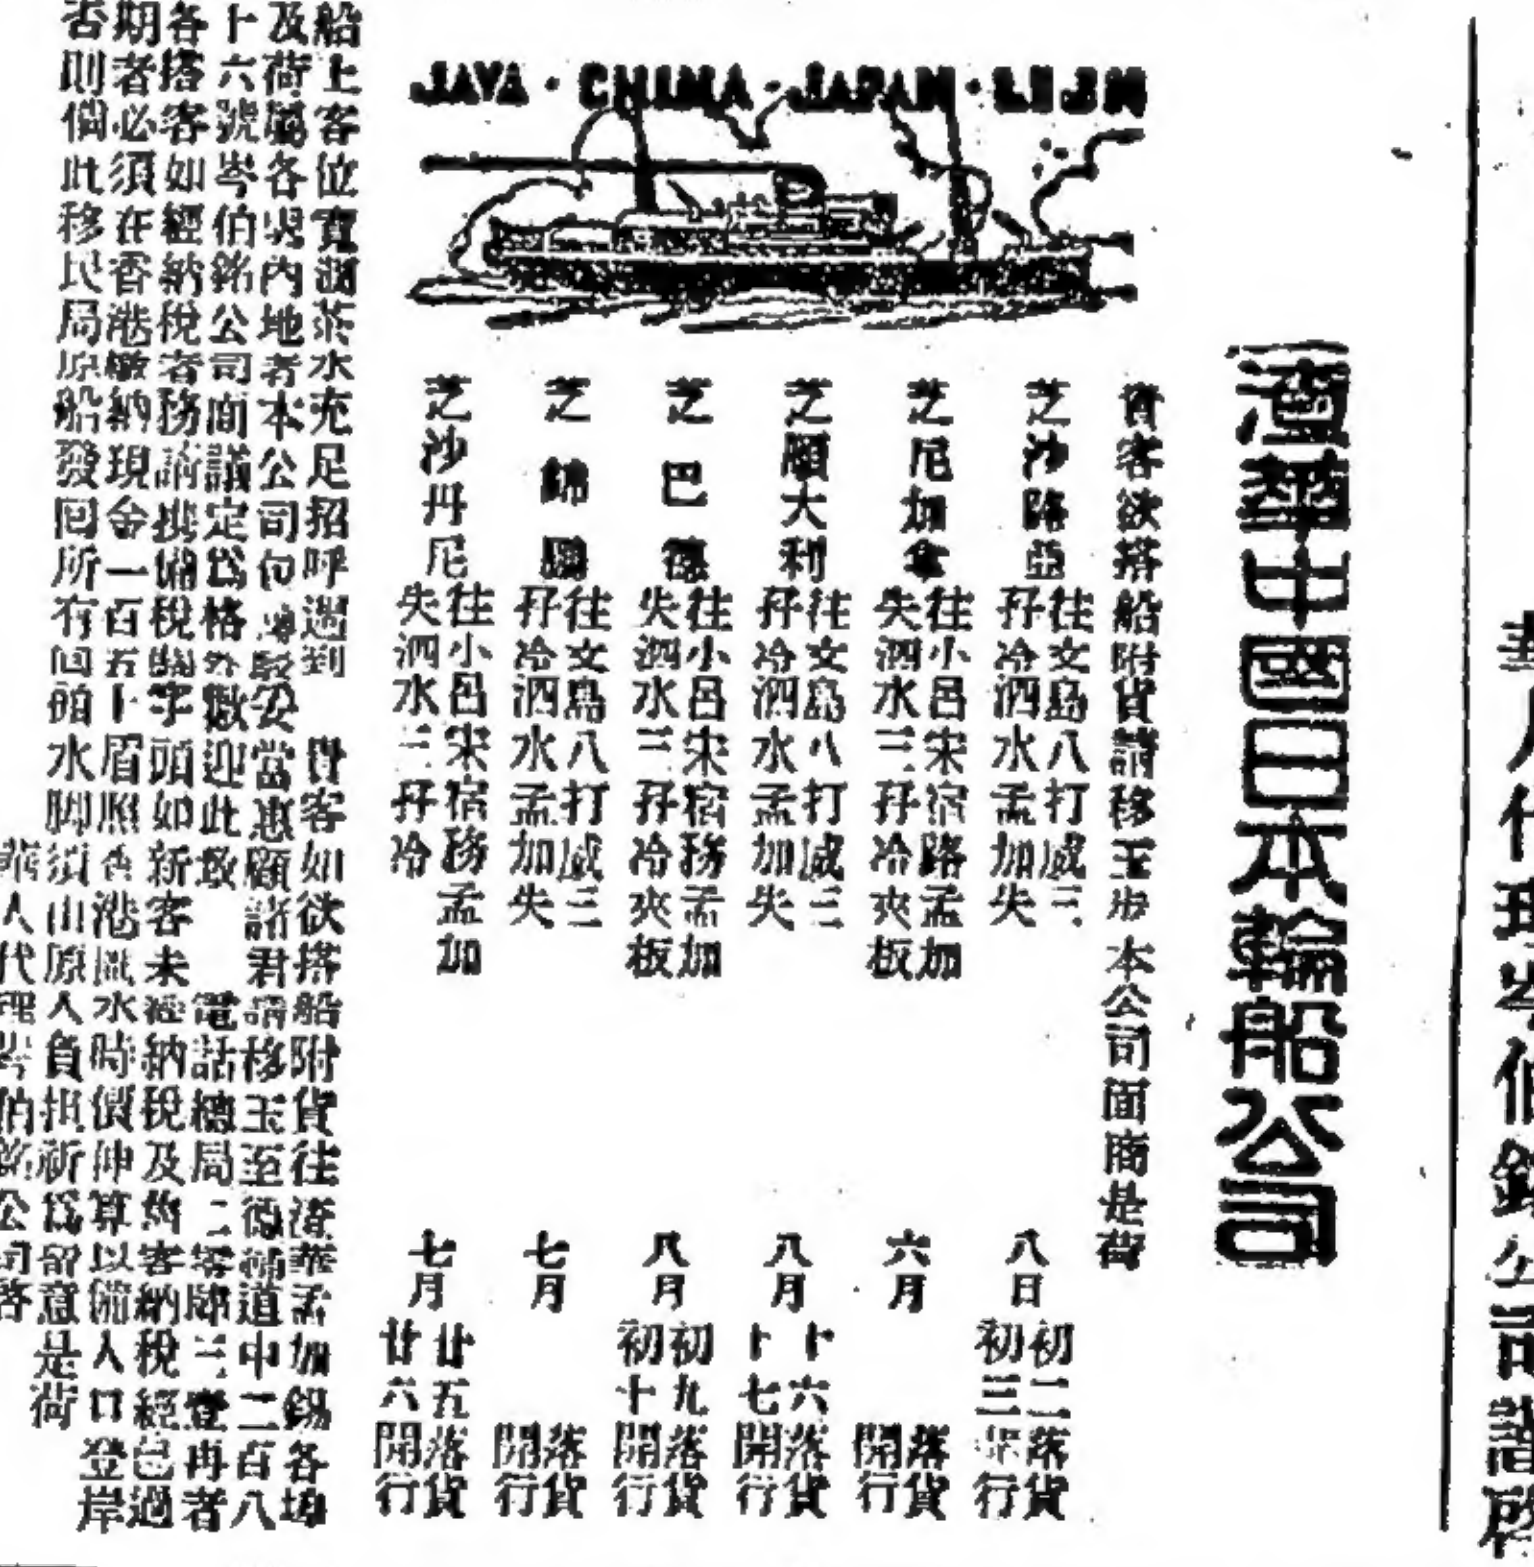 JAVA · CHINA · JAPAN · LIJN
渣華中國日本輪船公司
貴客欲搭船附貨請移玉步本公司面商是荷
芝沙路亞 往文島八打威三孖冷泗水孟加失 八日 初二落貨 初三 行
芝尼加拿 往小呂宋宿路孟加失泗水三孖冷夾板 六月 落貨 開行
芝順大利 往文島八打威三孖冷泗水孟加失 八月 十六落貨 十七開行
芝巴德 往小呂宋宿務孟加失泗水三孖冷夾板 八月 初九落貨 初十開行
芝錦鵬 往文島八打威三孖冷泗水孟加失 七月 落貨 開行
芝沙丹尼 往小呂宋宿務孟加失泗水三孖冷 七月 廿五落貨 廿六開行
船上客位寬 茶水充足招呼週到 貴客如欲搭船附貨往渣華孟加錫各埠
及荷屬各 內地者本公司 妥當惠顧諸君請移玉至德輔道中二百八
十六號岑伯銘公司面議定為格外歡迎此致 電話總局二零 三壹再者
各搭客如經納稅者務請携備稅 字頭如新客未經納稅及舊客納稅經已過
期者必須在香港繳納現金一百五十眉照香港 水時價伸算以備入口登岸
否則倘此移民局原船發回所有回頭水脚須由原人負担祈為留意是荷
華人代理岑伯銘公司啓
華人代理岑伯銘公司謹啓